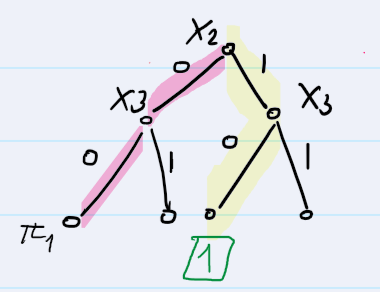 X₂
0 1
X₃ X₃
0 1 0 1
π₁
1